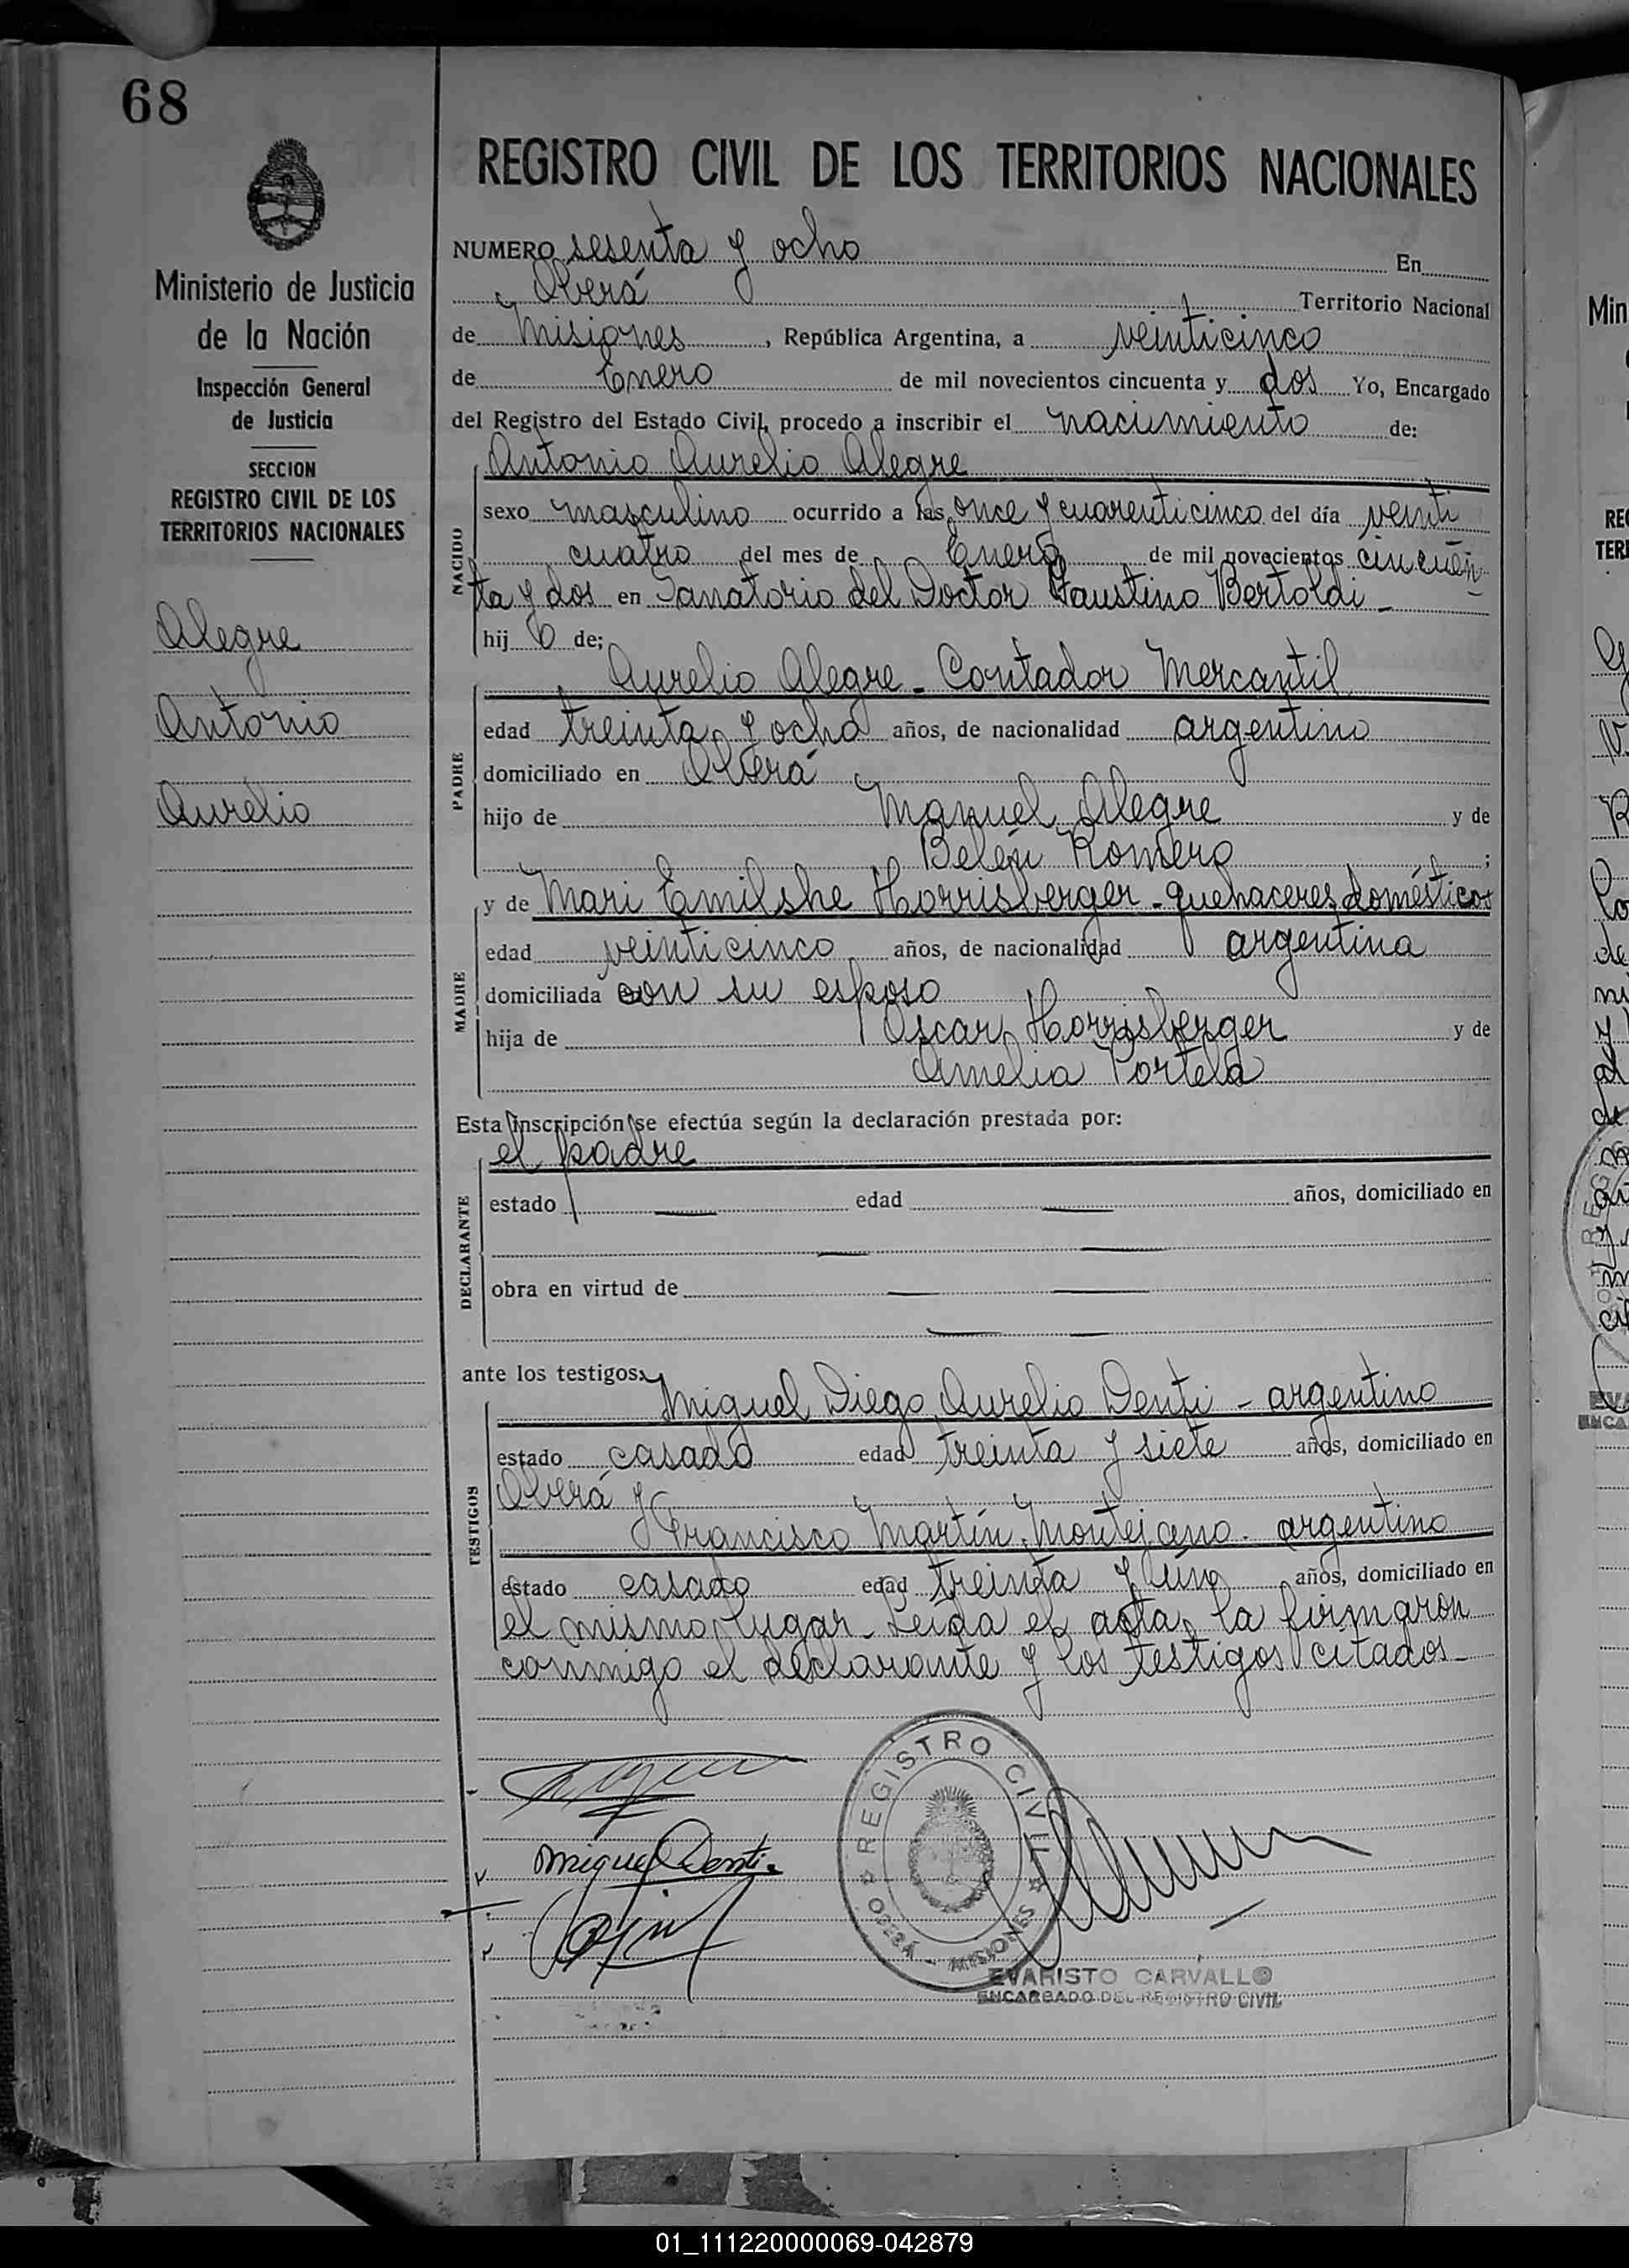 68
Ministerio de Justicia
de la Nación
Inspección General
de Justicia
SECCION
REGISTRO CIVIL DE LOS
TERRITORIOS NACIONALES
Alegre
Antonio
Aurelio
REGISTRO CIVIL DE LOS TERRITORIOS NACIONALES
NUMERO sesenta y ocho En
Oberá Territorio Nacional
de Misiones, República Argentina, a veinticinco
de Enero de mil novecientos cincuenta y dos Yo, Encargado
del Registro del Estado Civil, procedo a inscribir el nacimiento de:
Antonio Aurelio Alegre
NACIDO
sexo masculino ocurrido a las once y cuarenticinco del día veinti
cuatro del mes de Enero de mil novecientos cincuen
ta y dos en Sanatorio del Doctor Faustino Bertoldi -
hij o de;
Aurelio Alegre - Contador Mercantil
PADRE
edad treinta y ocho años, de nacionalidad argentino
domiciliado en Oberá
hijo de Manuel Alegre y de
Belén Romero ;
y de Mari Emilshe Horrisberger - quehaceres domésticos
MADRE
edad veinticinco años, de nacionalidad argentina
domiciliada con su esposo
hija de Oscar Horrisberger y de
Amelia Portela
Esta inscripción se efectúa según la declaración prestada por:
el padre
DECLARANTE
estado — edad — años, domiciliado en
— —
obra en virtud de — —
— —
ante los testigos:
Miguel Diego Aurelio Denti - argentino
TESTIGOS
estado casado edad treinta y siete años, domiciliado en
Oberá y
Francisco Martín Montejano - argentino
estado casado edad treinta y úno años, domiciliado en
el mismo lugar - Leída el acta, la firmaron
conmigo el declarante y los testigos citados -
Miguel Denti
REGISTRO CIVIL
OBERÁ - MISIONES
EVARISTO CARVALLO
ENCARGADO DEL REGISTRO CIVIL
01_111220000069-042879